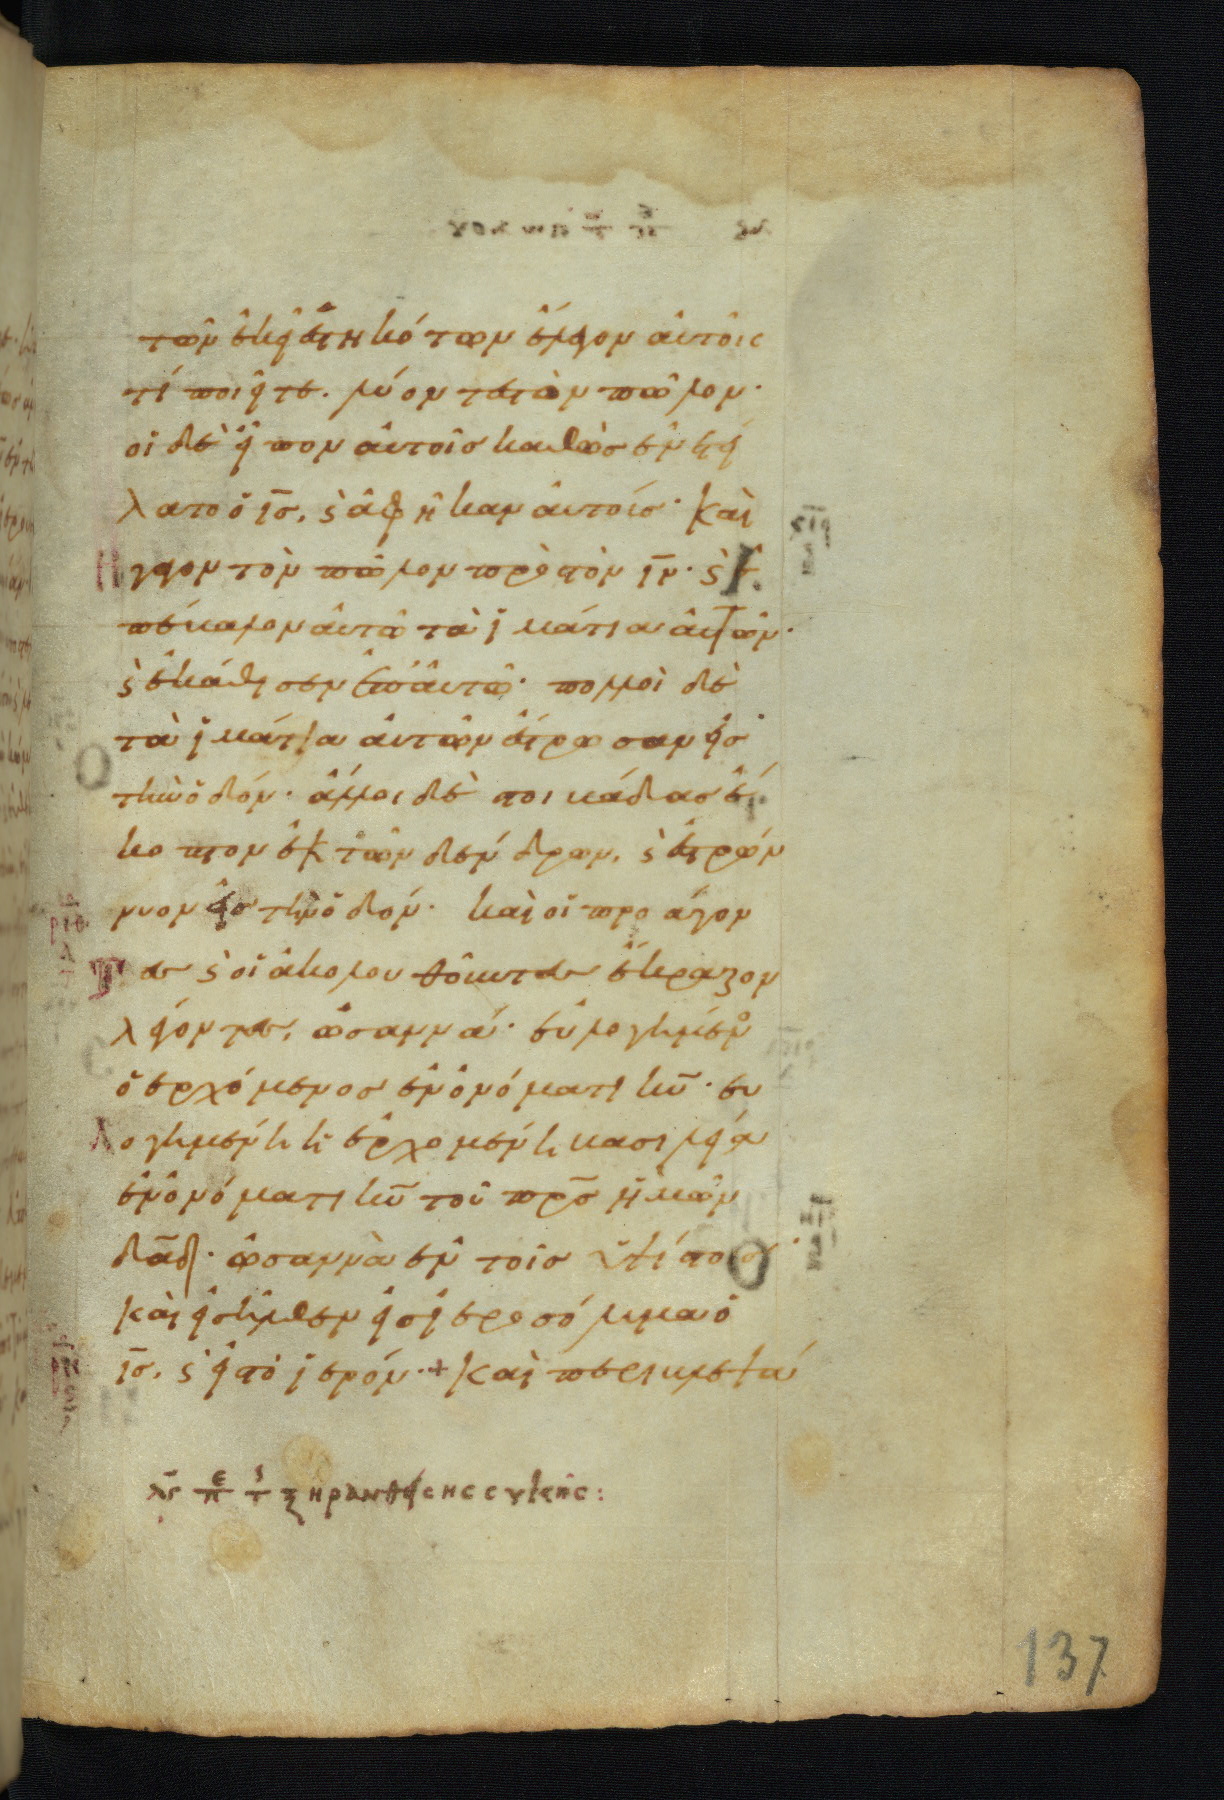 τῶν ἐκεῖ ἑστηκότων ἔλεγον αὐτοῖς
τί ποιεῖτε. λύοντες τὸν πῶλον·
οἱ δὲ εἶπον αὐτοῖς καθὼς ἐνετεί
λατο ὁ ις̅, ϛ ἀφῆκαν αὐτοίς· Και
ηγαγον τὸν πῶλον πρὸς τὸν ιν̅· ϛ ἐ
πέβαλον αὐτῶ τὰ ἱμάτια αὐτῶν·
ϛ ἐκάθισεν ἐπ αὐτῶ· πολλοὶ δὲ
τὰ ἱμάτια αὐτῶν ἔστρωσαν εἰς
τὴν ὁδόν· ἄλλοι δὲ στοιβάδας ἔ
κοπτον ἐκ τῶν δένδρων, ϛ ἐστρών
νυον εἰς τὴν ὁδόν· και οἱ προάγον
τες ϛ οἱ ἀκολουθοῦντες ἔκραζον
λέγοντες, ὡσαννά· εὐλογημένος
ὁ ερχόμενος ἐν ὀνόματι κυ̅· ευ
λογημένη ἡ ἐρχομένη βασιλεία
ἐν ὀνόματι κυ̅ τοῦ πρς̅ ἡμῶν
δαδ̅· ὡσαννὰ ἐν τοῖς ὑψίστοις·
Και εἰσῆλθεν εἰς ιεροσόλυμα ὁ
ις̅, ϛ εἰς τὸ ἱερόν·+ Και περιβλεψά
ξηρανθείσης συκῆς:
137